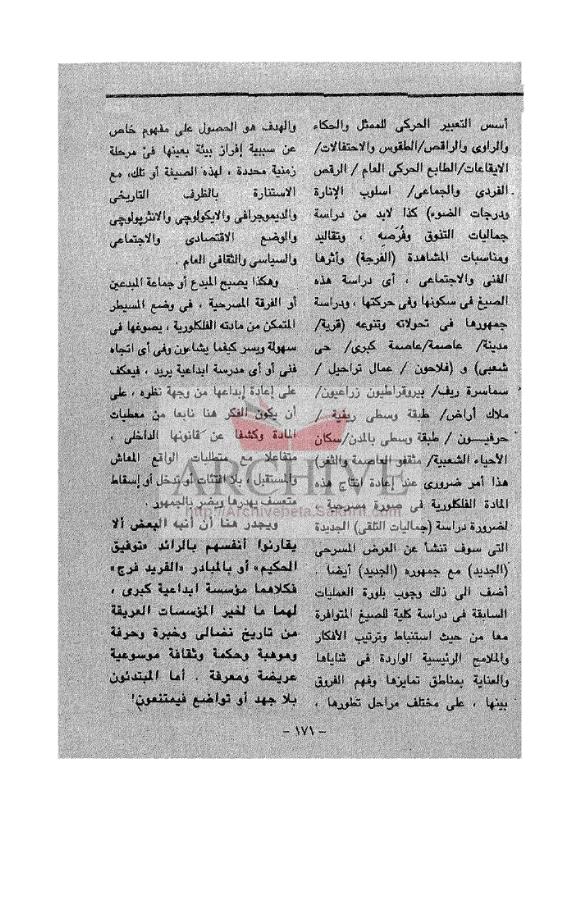 أسس التعبير الحركى للممثل والحكاء
والراوى والراقص/الطقوس والاحتفالات/
الايقاعات/الطابع الحركى العام / الرقص
الفردى والجماعى/ اسلوب الإنارة
ودرجات الضوء) كذا لابد من دراسة
جماليات التذوق وفُرَصِه ، وتقاليد
ومناسبات المشاهدة (الفرجة) وأثرها
الفنى والاجتماعى ، أى دراسة هذه
الصيغ فى سكونها وفى حركتها ، ودراسة
جمهورها فى تحولاته وتنوعه (قرية/
مدينة/ عاصمة/عاصمة كبرى/ حى
شعبى) و (فلاحون / عمال تراحيل /
سماسرة ريف/ بيروقراطيون زراعيون/
ملاك أراض/ طبقة وسطى ريفية /
حرفيــون / طبقة وسطى بالمدن/سكان
الأحياء الشعبية/ مثقفو العاصمة والثغر)
هذا أمر ضرورى عند إعادة انتاج هذه
المادة الفلكلورية فى صورة مسرحية .
لضرورة دراسة (جماليات التلقى) الجديدة
التى سوف تنشأ عن العرض المسرحى
(الجديد) مع جمهوره (الجديد) أيضا .
أضف الى ذلك وجوب بلورة العمليات
السابقة فى دراسة كلية للصيغ المتوافرة
معا من حيث استنباط وترتيب الأفكار
والملامح الرئيسية الواردة فى ثناياها
والعناية بمناطق تمايزها وفهم الفروق
بينها ، على مختلف مراحل تطورها ،
والهدف هو الحصول على مفهوم خاص
عن سببية إفراز بيئة بعينها فى مرحلة
زمنية محددة ، لهذه الصيغة أو تلك، مع
الاستنارة بالظرف التاريخى
والديموجرافى والايكولوچى والانثربولوچى
والوضع الاقتصادى والاجتماعى
والسياسى والثقافى العام .
وهكذا يصبح المبدع أو جماعة المبدعين
أو الفرقة المسرحية ، فى وضع المسيطر
المتمكن من مادته الفلكلورية ، يصوغها فى
سهولة ويسر كيفما يشاءون وفى أى اتجاه
فنى أو أى مدرسة ابداعية يريد ، فيعكف
على إعادة إبداعها من وجهة نظره ، على
أن يكون الفكر هنا نابعا من معطيات
المادة وكشفا عن قانونها الداخلى ،
متفاعلا مع متطلبات الواقع المعاش
والمستقبل ، بلا افتئات أو تدخل أو إسقاط
متعسف يهدرها ويضر بالجمهور .
ويجدر هنا أن أنبه البعض ألا
يقارنوا أنفسهم بالرائد «توفيق
الحكيم» أو بالمبادر «الفريد فرج»
فكلاهما مؤسسة ابداعية كبرى ،
لهما ما لخير المؤسسات العريقة
من تاريخ نضالى وخبرة وحرفة
وموهبة وحكمة وثقافة موسوعية
عريضة ومعرفة . أما المبتدئون
بلا جهد أو تواضع فيمتنعون!
ARCHIVE
http://Archivebeta.Sakhrit.com
- ١٧١ -